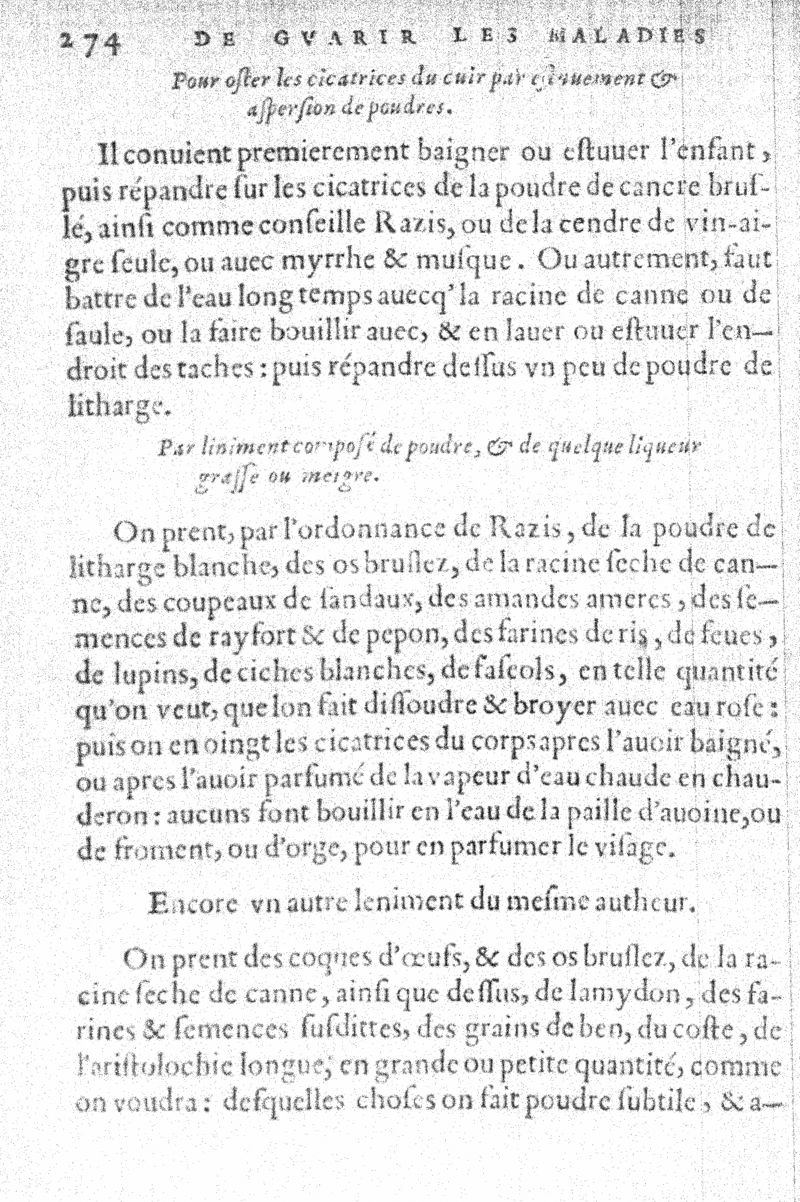 274 DE GVARIR LES MALADIES
Pour oſter les cicatrices du cuir par &
aſperſion de poudres.
Il conuient premierement baigner ou eſtuuer l'enfant,
puis répandre ſur les cicatrices de la poudre de cancre bruſ-
lé, ainſi comme conſeille Razis, ou de la cendre de vin-ai-
gre ſeule, ou auec myrrhe & muſque. Ou autrement, faut
battre de l'eau long temps auecq' la racine de canne ou de
ſaule, ou la faire bouillir auec, & en lauer ou eſtuuer l'en—
droit des taches : puis répandre deſſus vn peu de poudre de
litharge.
Par liniment compoſé de poudre, & de quelque liqueur
graſſe ou meigre.
On prent, par l'ordonnance de Razis, de la poudre de
litharge blanche, des os bruſlez, de la racine ſeche de can—
ne, des coupeaux de ſandaux, des amandes ameres, des ſe—
mences de rayfort & de pepon, des farines de ris, de feues,
de lupins, de ciches blanches, de faſeols, en telle quantité
qu'on veut, que lon fait diſſoudre & broyer auec eau roſe :
puis on en oingt les cicatrices du corps apres l'auoir baigné,
ou apres l'auoir parfumé de la vapeur d'eau chaude en chau-
deron : aucuns font bouillir en l'eau de la paille d'auoine, ou
de froment, ou d'orge, pour en parfumer le viſage.
Encore vn autre leniment du meſme autheur.
On prent des coques d'œufs, & des os bruſlez, de la ra-
cine ſeche de canne, ainſi que deſſus, de lamydon, des fa-
rines & ſemences ſuſdittes, des grains de ben, du coſte, de
l'ariſtolochie longue, en grande ou petite quantité, comme
on voudra : deſquelles choſes on fait poudre ſubtile, & a—